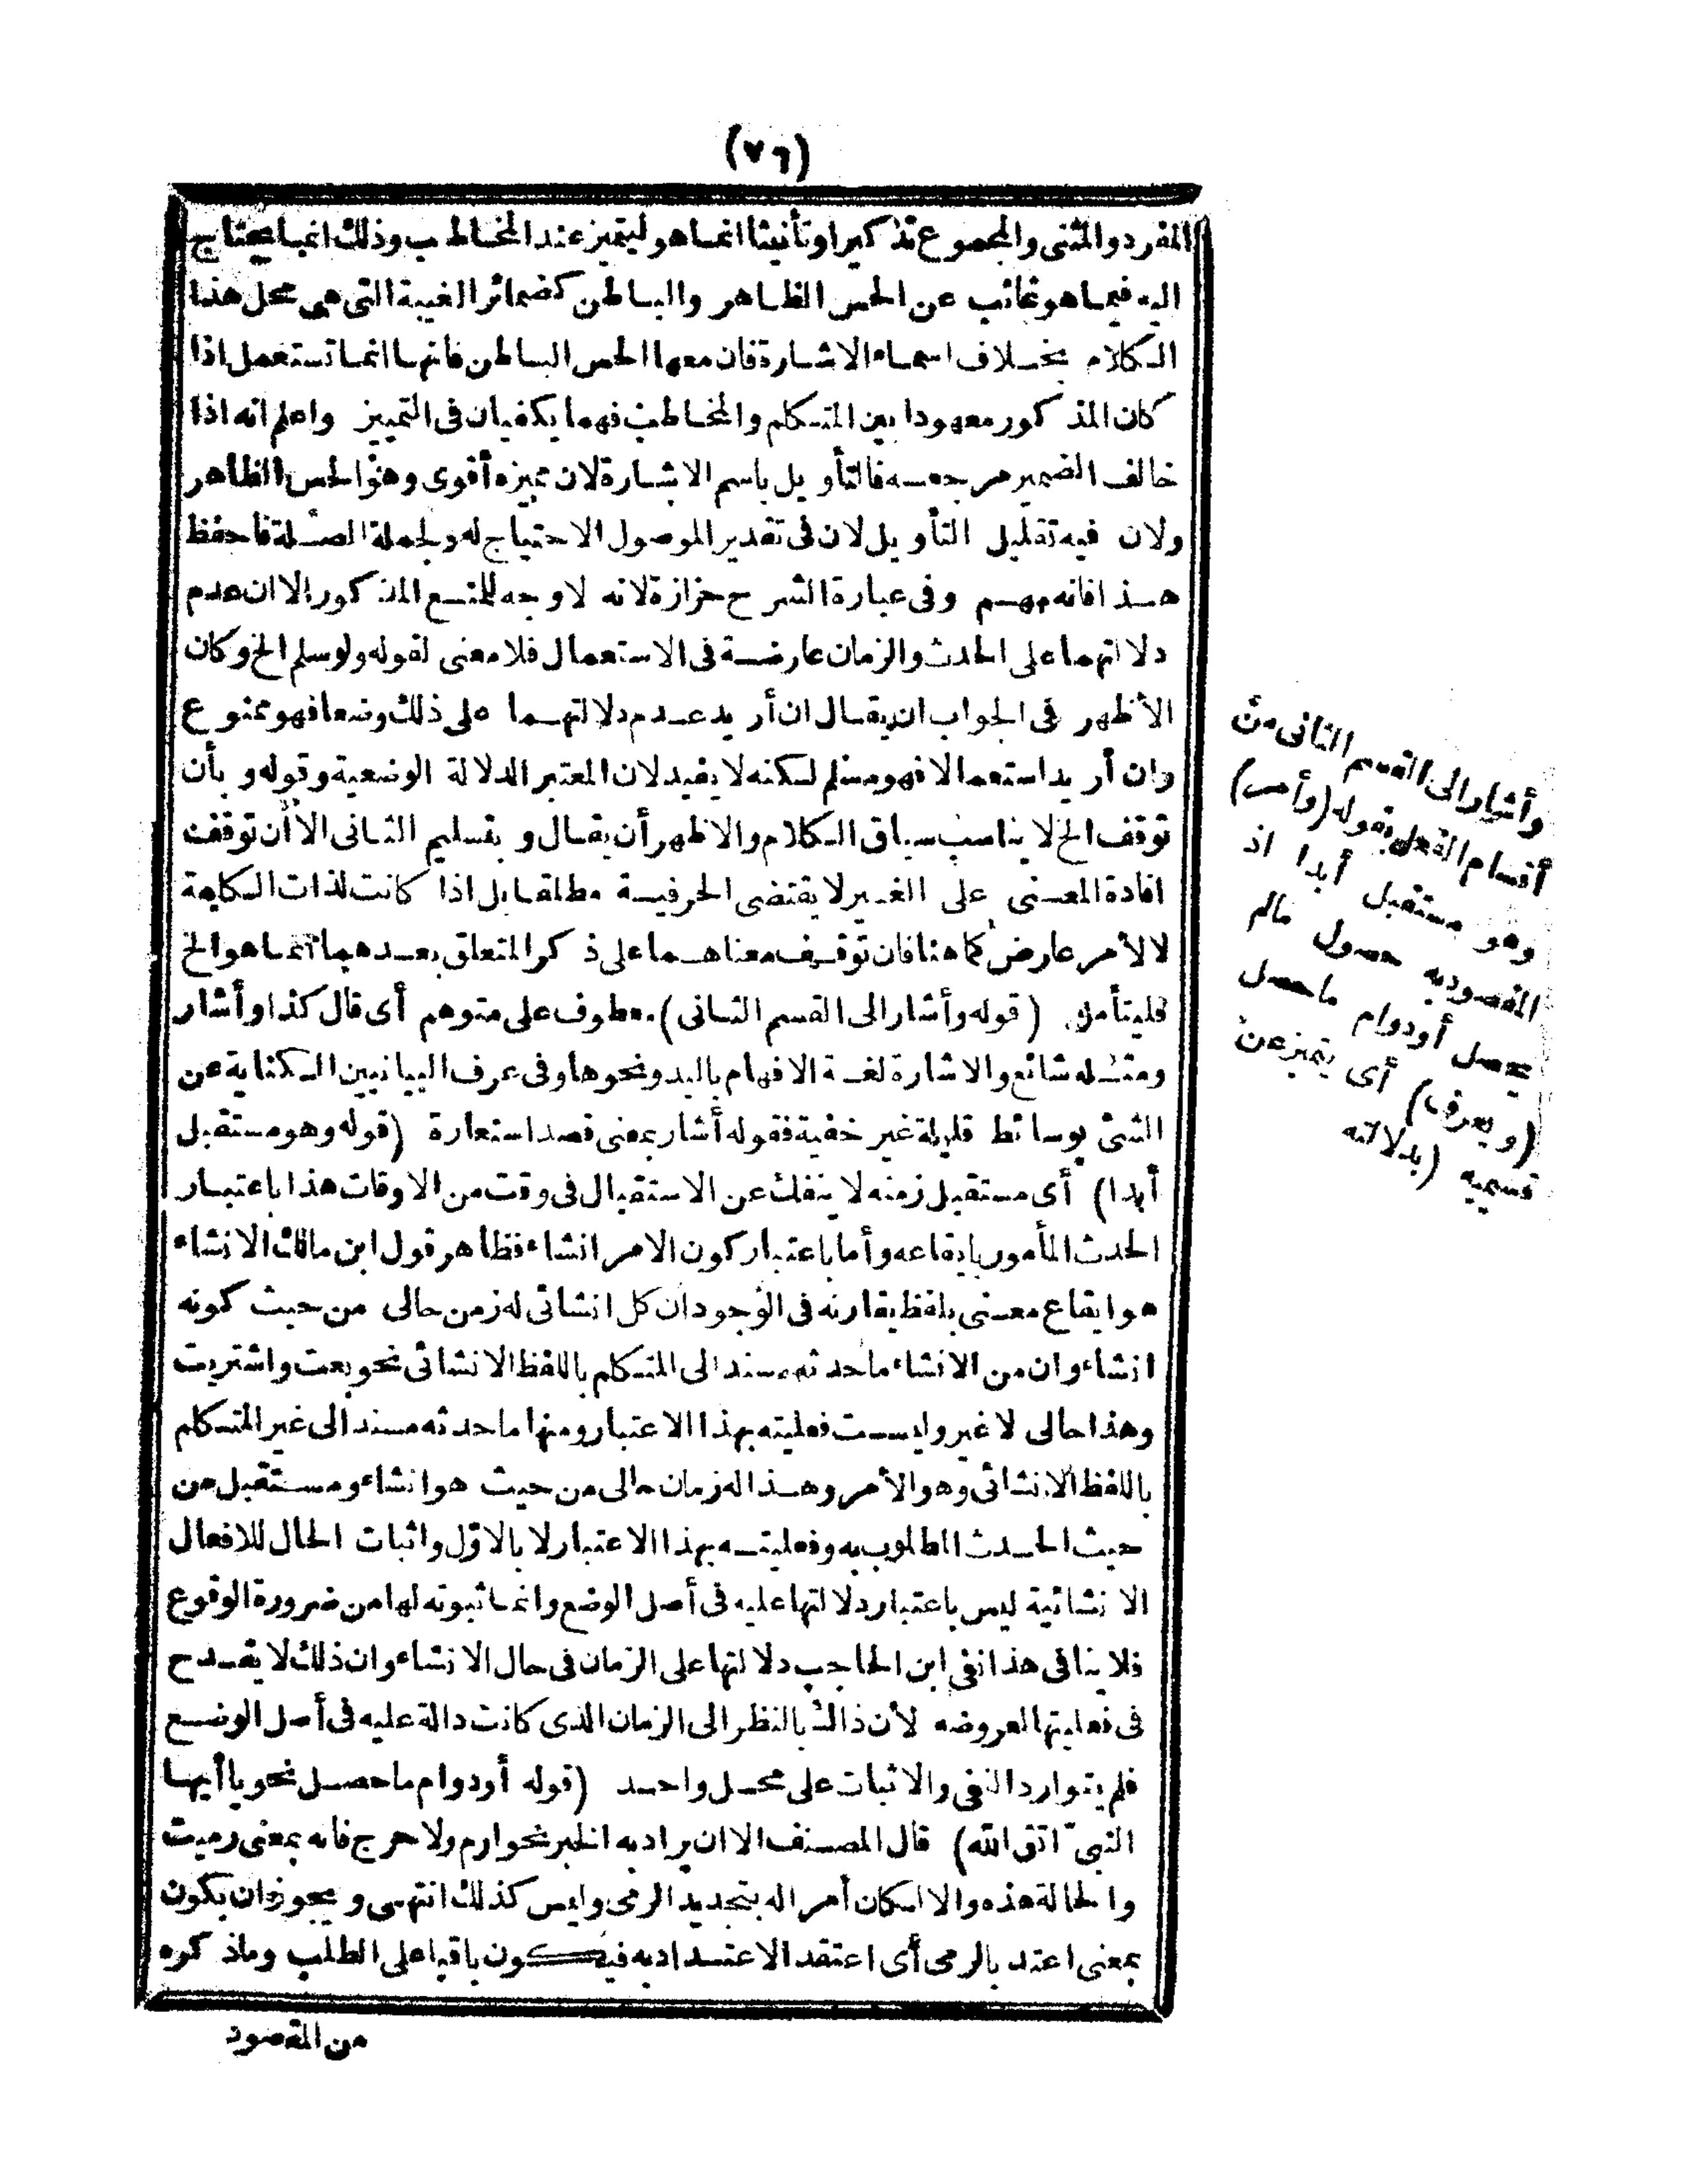 (٧٦)
المفرد والمثنى والمجموع تذكيرا وتأنيثا انما هو ليتميز عند المخاطب وذلك انما يحتاج
اليه فيما هو غائب عن الحس الظاهر والباطن كضمائر الغيبة التى هى محل هذا
الكلام بخلاف اسماء الاشارة فان معها الحس الباطن فانها انما تستعمل اذا
كان المذكور معهودا بين المتكلم والمخاطب فهما يكفيان فى التمييز واعلم انه اذا
خالف الضمير مرجعه فالتأويل باسم الاشارة لان مميزه أقوى وهو الحس الظاهر
ولان فيه تقليل التأويل لان فى تقدير الموصول الاحتياج له ولجملة الصلة فاحفظ
هذا فانه مهم وفى عبارة الشرح حزازة لانه لا وجه للمنع المذكور الا ان عدم
دلالتهما على الحدث والزمان عارضة فى الاستعمال فلا معنى لقوله ولو سلم الخ وكان
الأظهر فى الجواب ان يقال ان أريد عدم دلالتهما على ذلك وضعا فهو ممنوع
وان أريد استعمالا فهو مسلم لكنه لا يفيد لان المعتبر الدلالة الوضعية وقوله وبأن
توقف الخ لا يناسب سياق الكلام والاظهر أن يقال وبتسليم الثانى الا أن توقف
افادة المعنى على الغير لا يقتضى الحرفية مطلقا بل اذا كانت لذات الكلمة
لا لأمر عارض كما هنا فان توقيف معناهما على ذكر المتعلق بعدهما انما هو الخ
فليتأمل (قوله وأشار الى القسم الثانى) معطوف على متوهم أى قال كذا وأشار
ومثله شائع والاشارة لغة الافهام باليد ونحوها وفى عرف البيانيين الكناية عن
الشئ بوسائط قليلة غير خفية فقوله أشار بمعنى قصد استعارة (قوله وهو مستقبل
أبدا) أى مستقبل زمنه لا ينفك عن الاستقبال فى وقت من الاوقات هذا باعتبار
الحدث المأمور بايقاعه وأما باعتبار كون الامر انشاء فظاهر قول ابن مالك الانشاء
هو ايقاع معنى بلفظ يقارنه فى الوجود ان كل انشائى له زمن حالى من حيث كونه
انشاء وان من الانشاء ما حدثه مسند الى المتكلم باللفظ الانشائى نحو بعت واشتريت
وهذا حالى لا غير وليست فعليته بهذا الاعتبار ومنها ما حدثه مسند الى غير المتكلم
باللفظ الانشائى وهو الأمر وهذا له زمان حالى من حيث هو انشاء ومستقبل من
حيث الحدث المطلوب به وفعليته بهذا الاعتبار لا بالاوّل واثبات الحال للافعال
الانشائية ليس باعتبار دلالتها عليه فى أصل الوضع وانما ثبوته لها من ضرورة الوقوع
فلا ينافى هذا نفى ابن الحاجب دلالتها على الزمان فى حال الانشاء وان ذلك لا يقدح
فى فعليتها لعروضه لأن ذاك بالنظر الى الزمان الذى كانت دالة عليه فى أصل الوضع
فلم يتوارد النفى والاثبات على محل واحد (قوله أو دوام ما حصل نحو يا أيها
النبىّ اتق الله) قال المصنف الا ان يراد به الخبر نحو ارم ولا حرج فانه بمعنى رميت
والحالة هذه والا لكان أمرا له بتجديد الرمى وليس كذلك انتهى ويجوز ان يكون
بمعنى اعتد بالرمى أى اعتقد الاعتداد به فيكون باقيا على الطلب وما ذكره
من المقصود
وأشار الى القسم الثانى من
أقسام الفعل بقوله (وأمر)
وهو مستقبل أبدا اذ
المقصود به حصول مالم
يحصل أو دوام ما حصل
(ويعرف) أى يتميز عن
قسميه (بدلالته